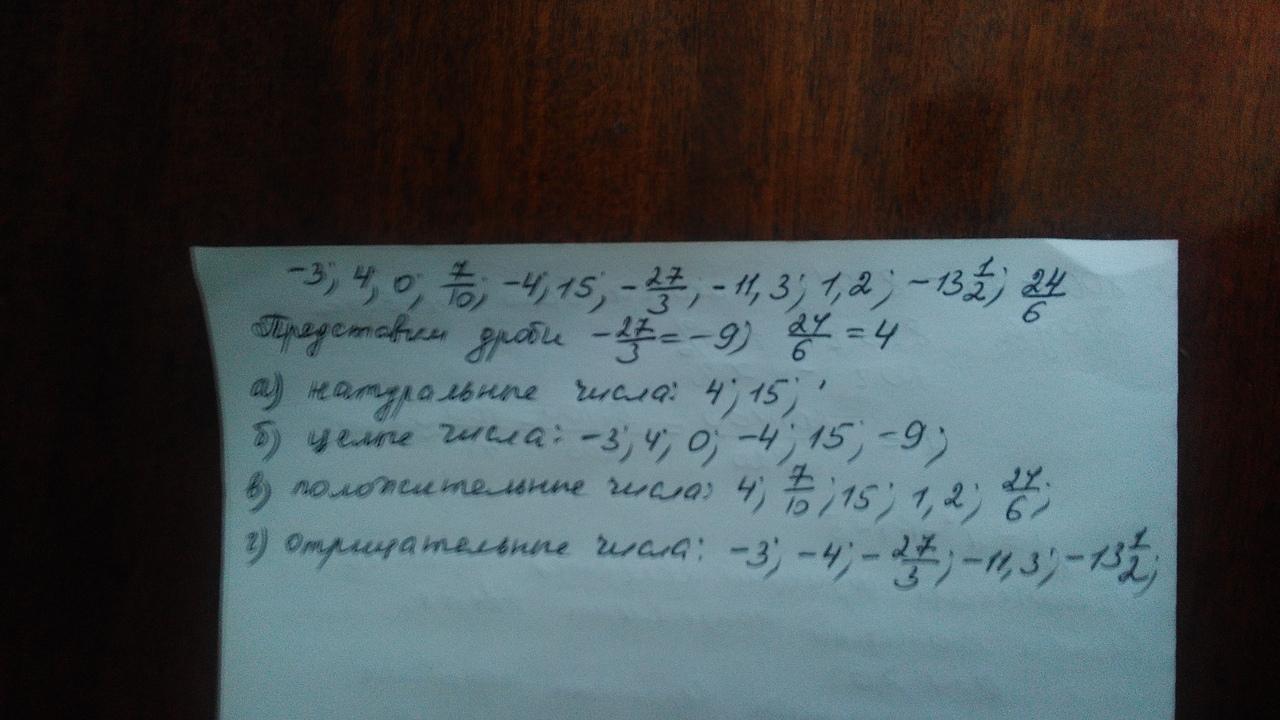 -3; 4; 0; 7/10; -4; 15; -27/3; -11,3; 1,2; -13 1/2; 24/6
Представим дроби -27/3 = -9; 24/6 = 4
а) натуральные числа: 4; 15;
б) целые числа: -3; 4; 0; -4; 15; -9;
в) положительные числа: 4; 7/10; 15; 1,2; 24/6;
г) отрицательные числа: -3; -4; -27/3; -11,3; -13 1/2;